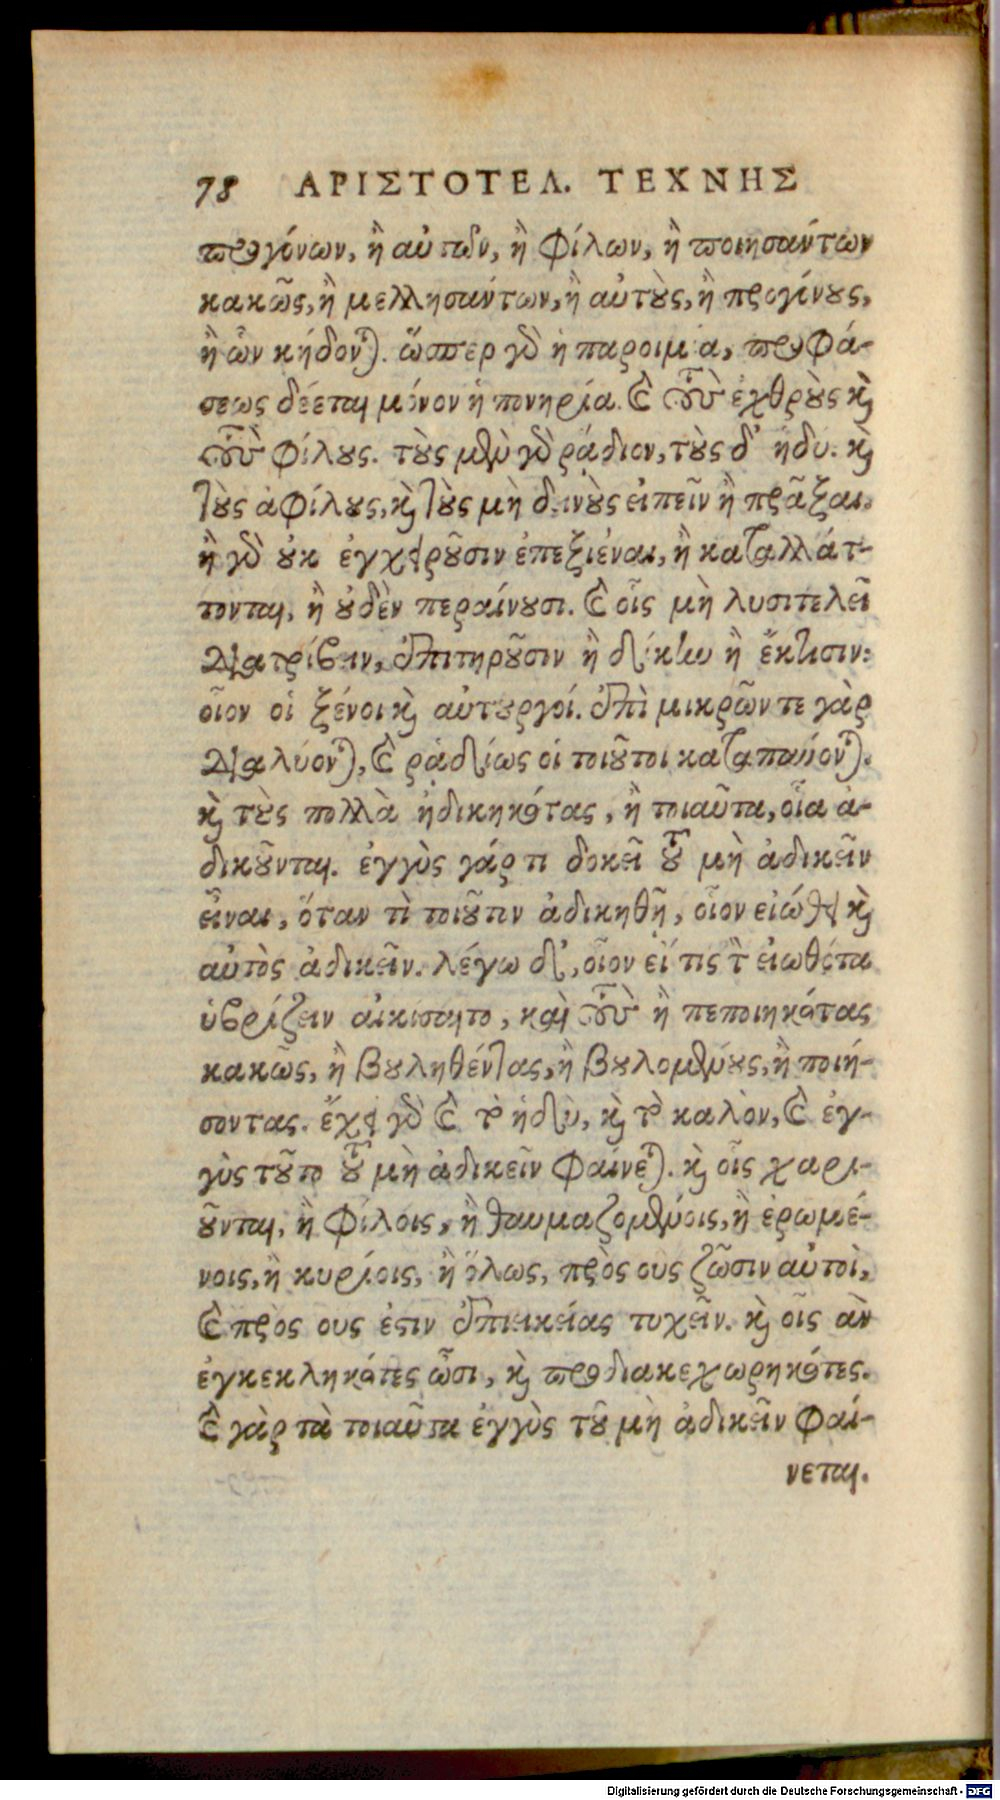 78 ΑΡΙΣΤΟΤΕΛ. ΤΕΧΝΗΣ
προγόνων, ἢ αὐτῶν, ἢ φίλων, ἢ ποιησάντων
κακῶς, ἢ μελλησάντων, ἢ αὐτοὺς, ἢ προγόνους,
ἢ ὧν κήδονται. ὥσπερ γὰρ ἡ παροιμία, προφά-
σεως δέεται μόνον ἡ πονηρία. καὶ τοὺς ἐχθροὺς καὶ
τοὺς φίλους. τοὺς μὲν γὰρ ῥᾴδιον, τοὺς δ' ἡδύ. καὶ
τοὺς ἀφίλους, καὶ τοὺς μὴ δεινοὺς εἰπεῖν ἢ πρᾶξαι.
ἢ γὰρ οὐκ ἐγχειροῦσιν ἐπεξιέναι, ἢ καταλλάτ-
τονται, ἢ οὐδὲν περαίνουσι. καὶ οἷς μὴ λυσιτελεῖ
διατρίβειν, ἐπιτηροῦσιν ἢ δίκην ἢ ἔκτισιν:
οἷον οἱ ξένοι καὶ αὐτουργοί. ἐπὶ μικρῶν τε γὰρ
διαλύονται, καὶ ῥᾳδίως οἱ τοιοῦτοι καταπαύονται.
καὶ τοὺς πολλὰ ἠδικηκότας, ἢ τοιαῦτα, οἷα ἀ-
δικοῦνται. ἐγγὺς γάρ τι δοκεῖ τοῦ μὴ ἀδικεῖν
εἶναι, ὅταν τὶ τοιοῦτιν ἀδικηθῇ, οἷον εἰώθει καὶ
αὐτὸς ἀδικεῖν. λέγω δ', οἷον εἴ τις τὸν εἰωθότα
ὑβρίζειν αἰκίσαιτο, καὶ τοὺς ἢ πεποιηκότας
κακῶς, ἢ βουληθέντας, ἢ βουλομένους, ἢ ποιή-
σοντας. ἔχει γὰρ καὶ τὸ ἡδὺ, καὶ τὸ καλὸν, καὶ ἐγ-
γὺς τοῦτο τοῦ μὴ ἀδικεῖν φαίνεται. καὶ οἷς χαρι-
οῦνται, ἢ φίλοις, ἢ θαυμαζομένοις, ἢ ἐρωμέ-
νοις, ἢ κυρίοις, ἢ ὅλως, πρὸς ους ζῶσιν αὐτοὶ,
καὶ πρὸς ους ἐστιν ἐπιεικείας τυχεῖν. καὶ οἷς ἂν
ἐγκεκληκότες ὦσι, καὶ προδιακεχωρηκότες.
καὶ γὰρ τὰ τοιαῦτα ἐγγὺς τοῦ μὴ ἀδικεῖν φαί-
νεται.
Digitalisierung gefördert durch die Deutsche Forschungsgemeinschaft - DFG